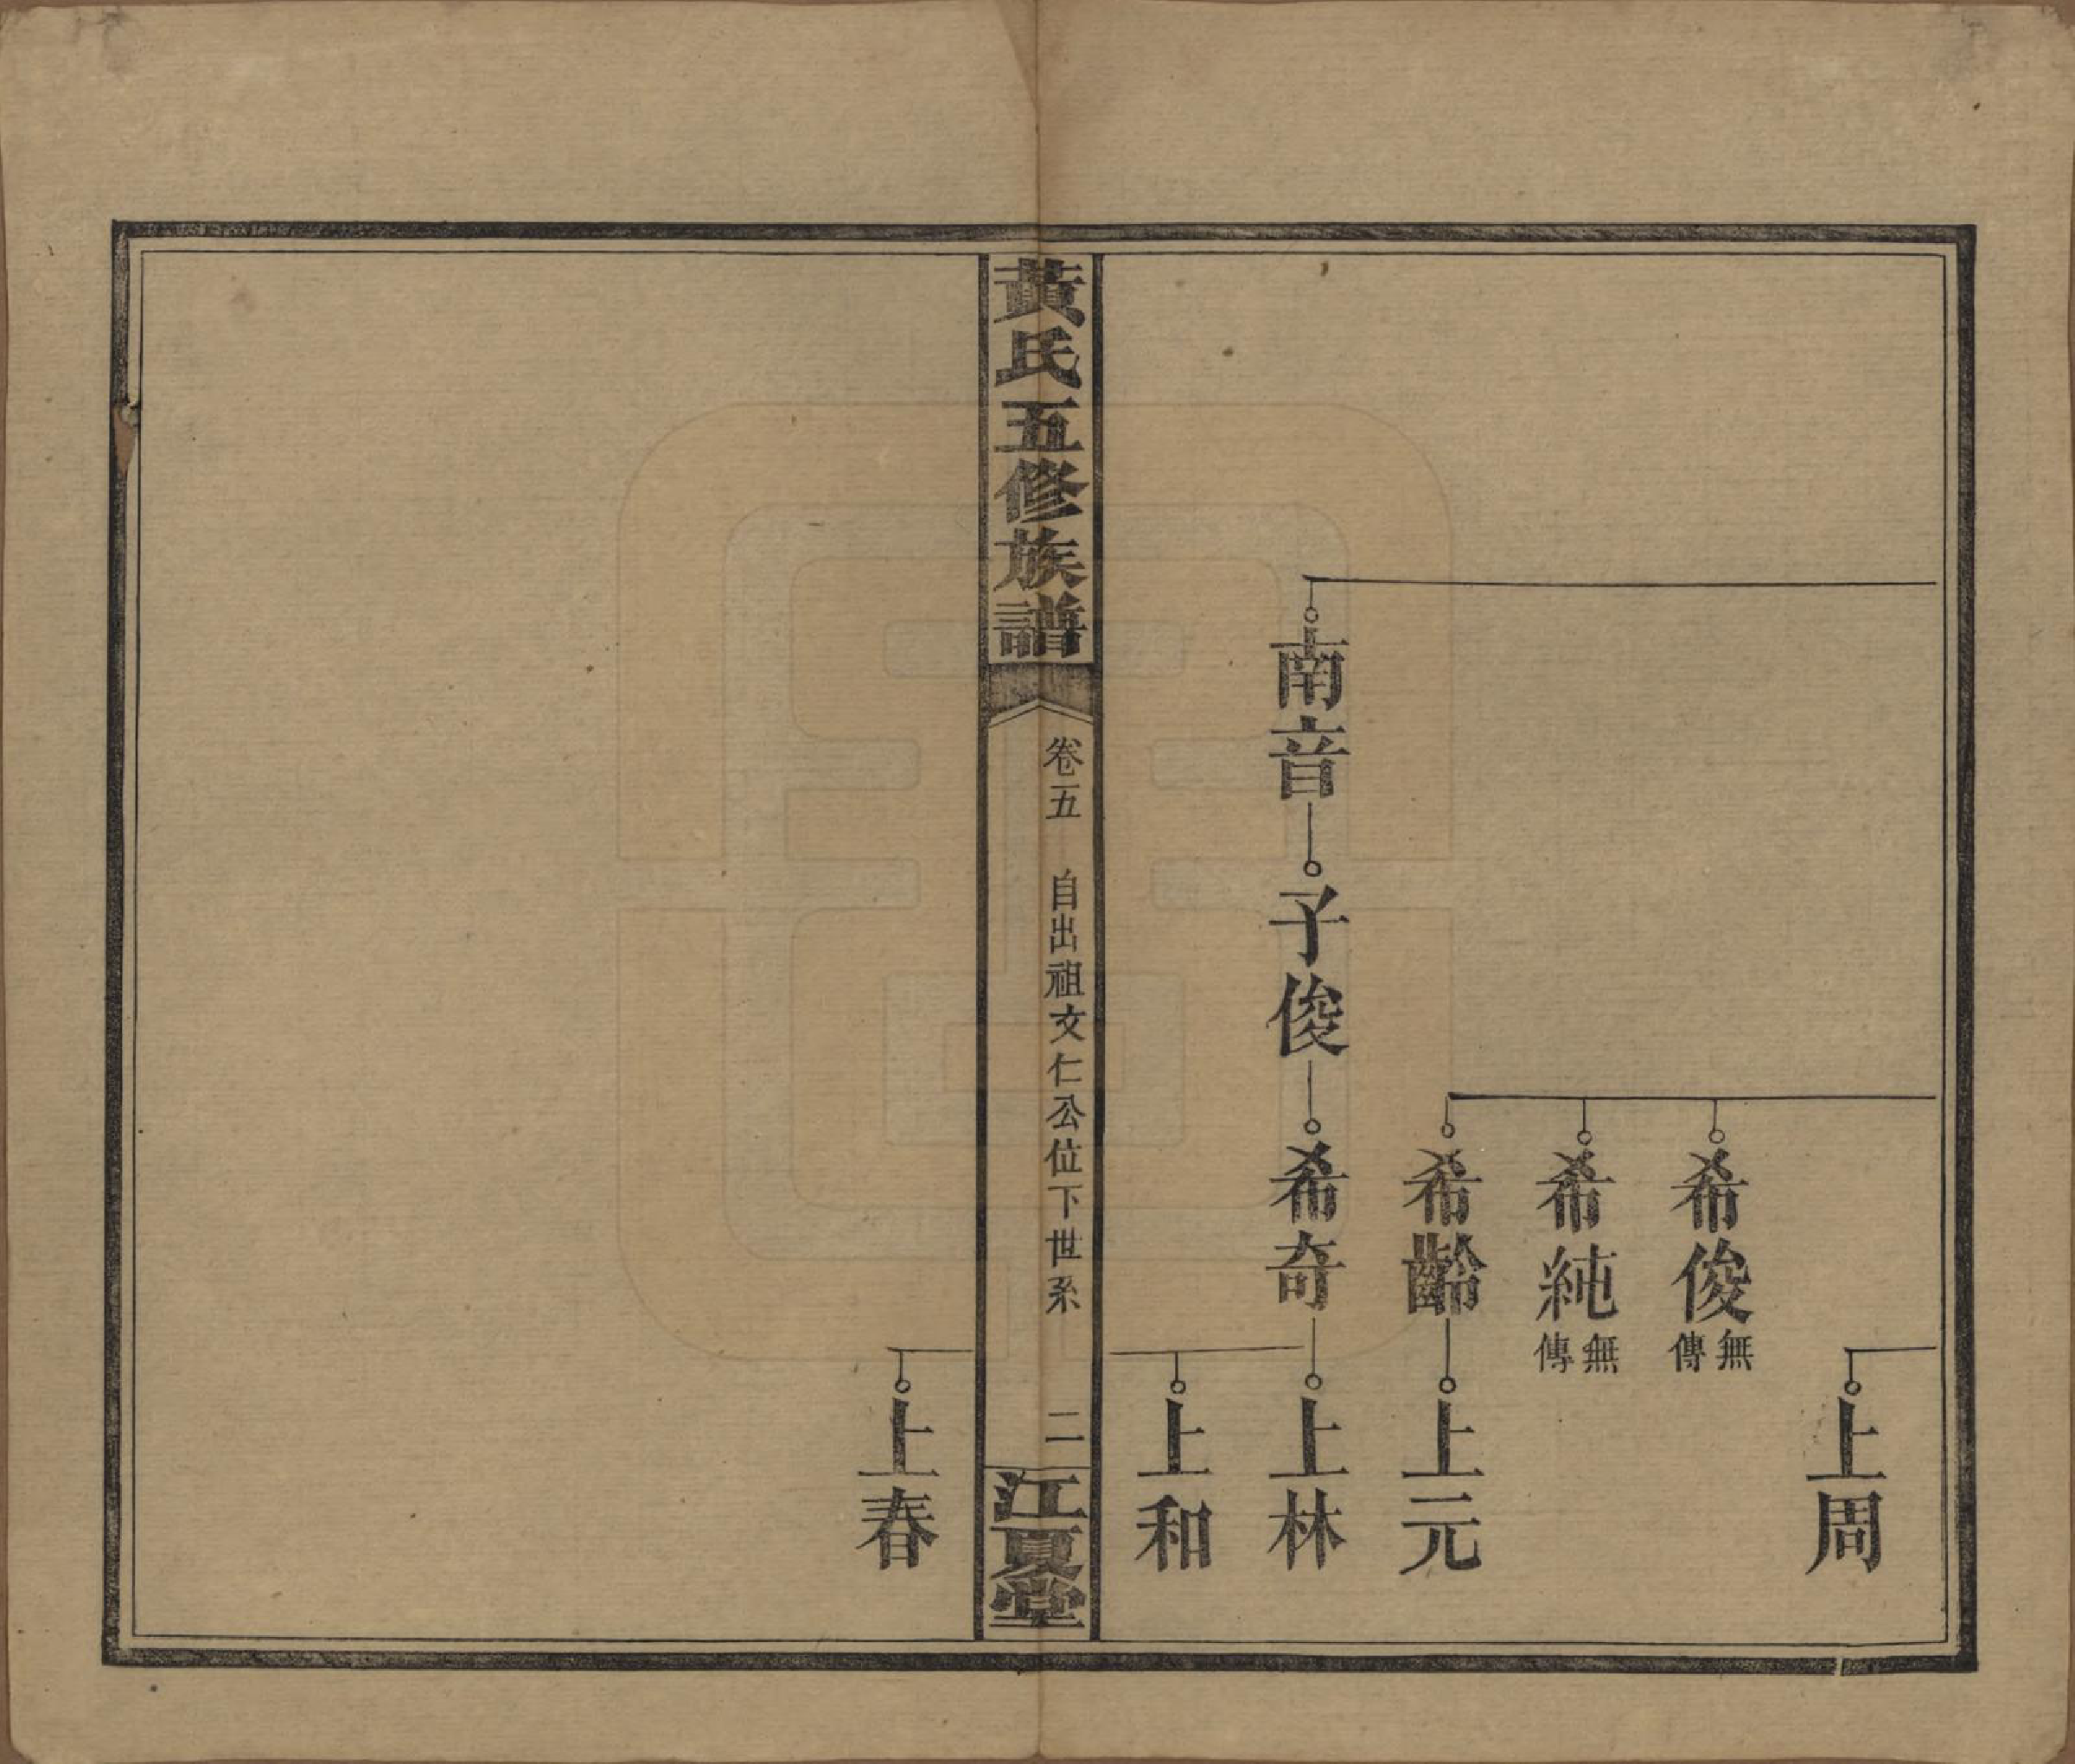 上周
希俊
無傳
希純
無傳
希齡
上元
南音
子俊
希奇
上林
上和
黃氏五修族譜
卷五
自出祖文仁公位下世系
二
江夏堂
上春